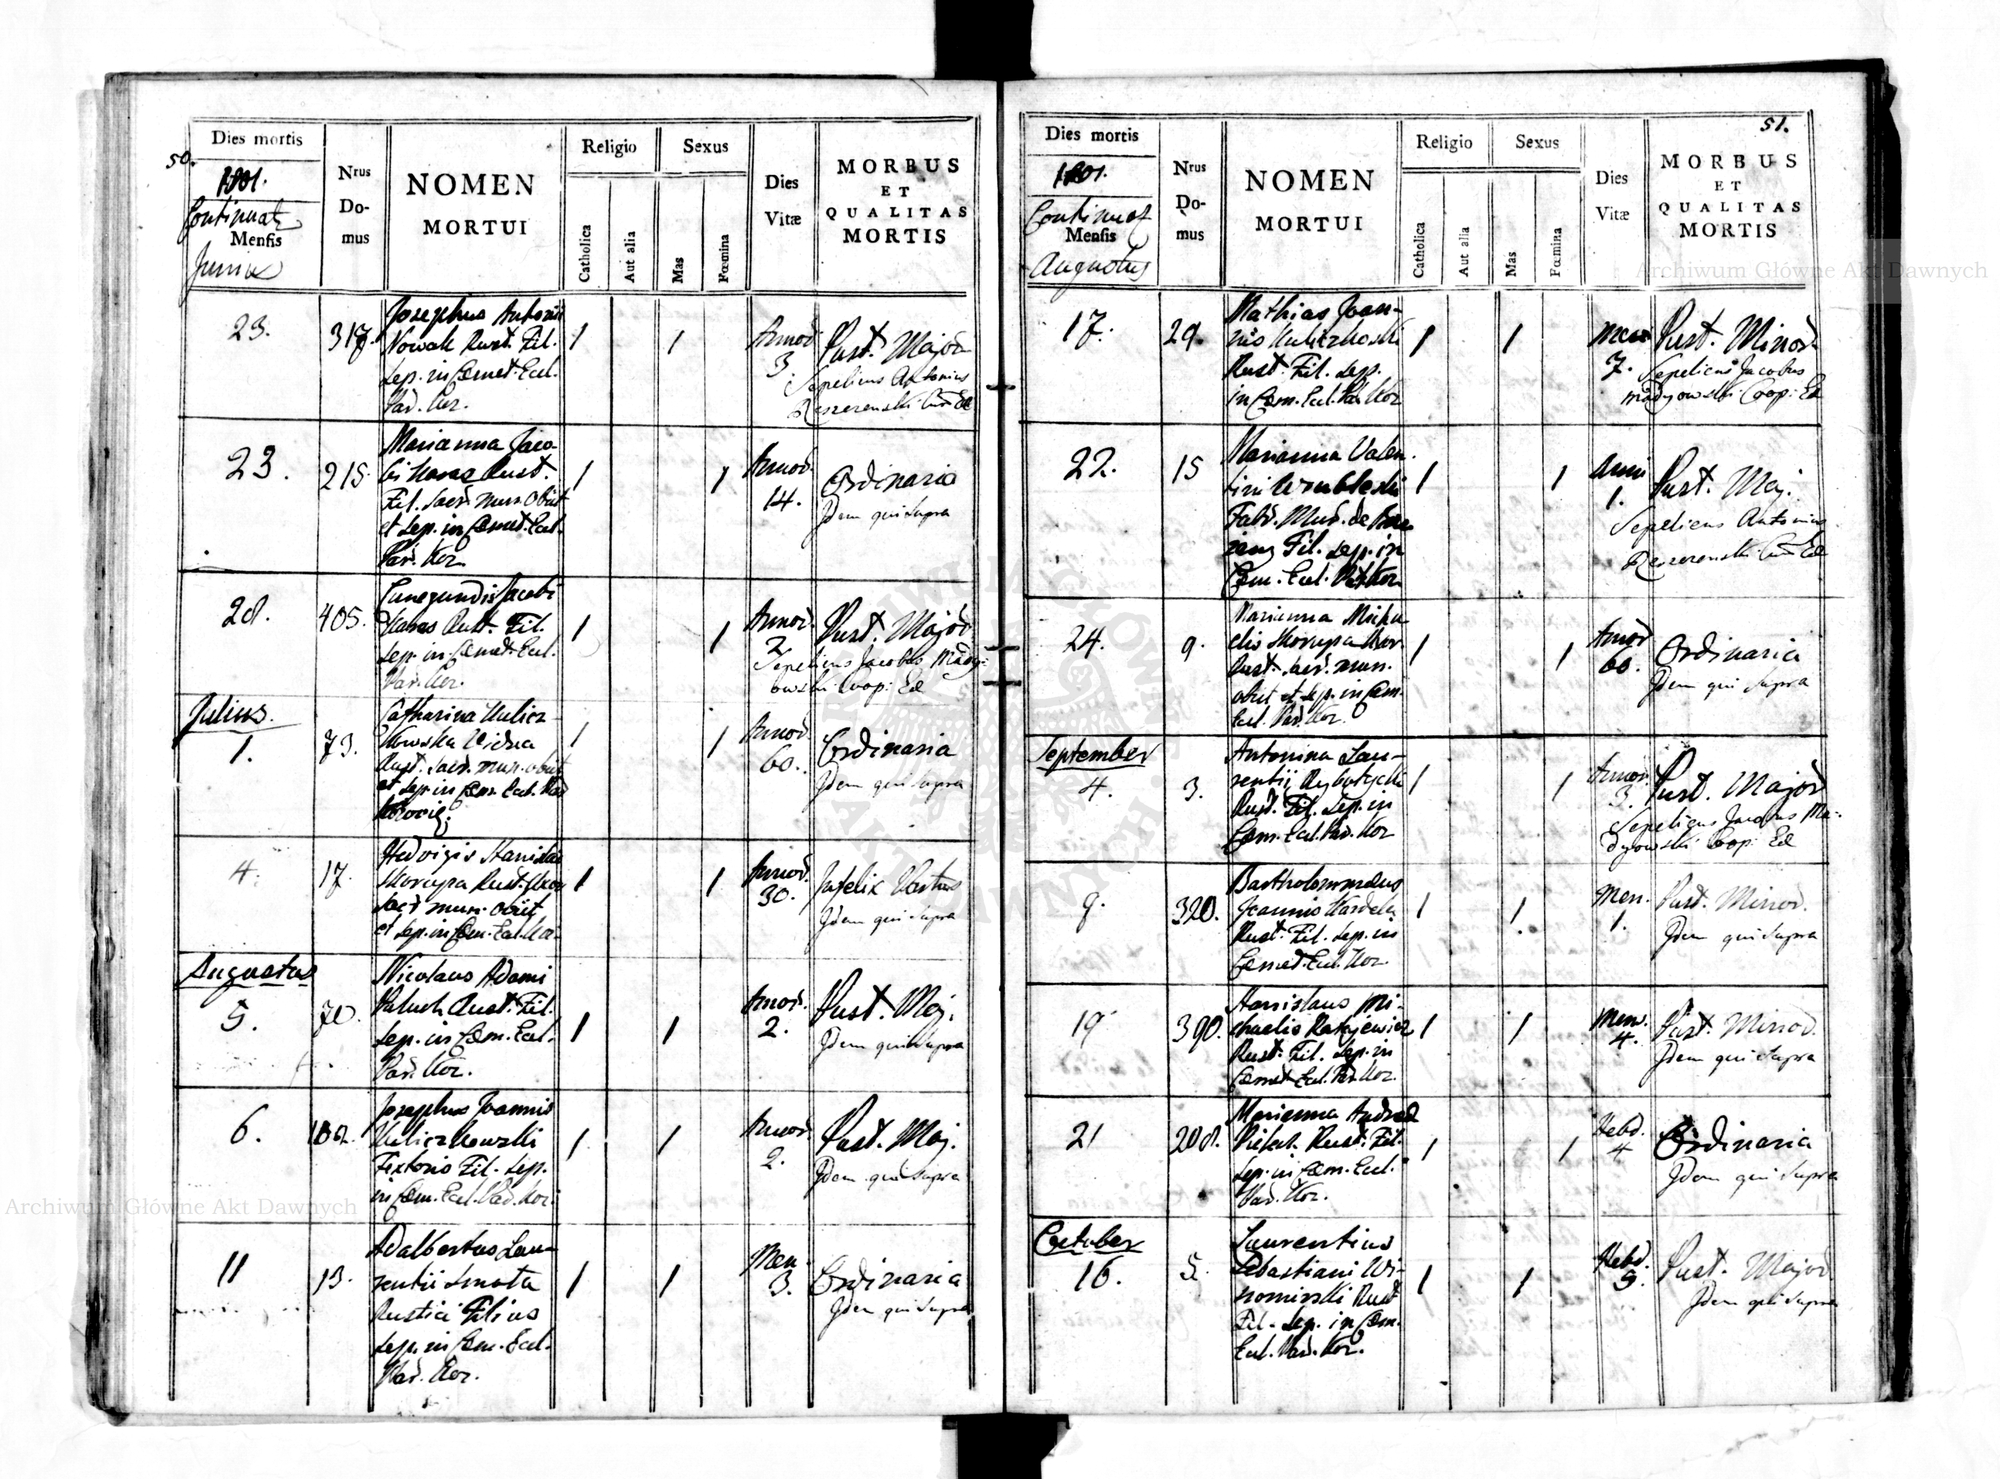 50.
Dies mortis
1801.
Continuat
Mensis
Junius
Nrus
Do-
mus
NOMEN
MORTUI
Religio
Catholica
Aut alia
Sexus
Mas
Fœmina
Dies
Vitæ
MORBUS
ET
QUALITAS
MORTIS
23.
317.
Josephus Antonii
Nowak Rust. Fil.
Sep. in Cemet. Eccl.
Par. Kor.
1
1
Annor.
3.
Pust. Major
Sepeliens Antonius
23.
215.
Marianna Jaco-
bi Haras Rust.
Fil. Sacr. mun. obiit
et Sep. in Cemet. Eccl.
Par. Kor.
1
1
Annor.
14.
Ordinaria
Idem qui supra
28.
405.
Cunegundis Jacobi
Haras Rust. Fil.
Sep. in Cemet. Eccl.
Par. Kor.
1
1
Annor.
2
Pust. Major
Sepeliens Jacobus Mady-
owski Coop: Ec
Julius.
1.
73.
Catharina Kulicz-
kowska Vidua
Rust. Sacr. mun. obiit
et Sep. in Cem. Eccl. Par
1
1
Annor.
60.
Ordinaria
Idem qui supra
4.
17.
Hedvigis Stanislai
Skorupa Rust. Uxor
Sacr mun. obiit
et Sep. in Cem. Ecl. Kor.
1
1
Annor.
30.
Infelix Partus
Idem qui supra
Augustus
5.
70.
Nicolaus Adami
Paluch Rust. Fil.
Sep. in Cem. Eccl.
Par. Kor.
1
1
Annor.
2.
Pust. Maj.
Idem qui supra
6.
102.
Josephus Joannis
Kuliczkowski
Textoris Fil. Sep.
in Cem. Ecl. Par. Kor.
1
1
Annor.
2.
Pust. Maj.
Idem qui supra
11
13.
Adalbertus Lau-
rentii Smota
Rustici Filius
Sep. in Cem. Eccl.
Par. Kor.
1
1
Men.
3.
Ordinaria
Idem qui supra
51.
Dies mortis
1801.
Continuat
Mensis
Augustus
Nrus
Do-
mus
NOMEN
MORTUI
Religio
Catholica
Aut alia
Sexus
Mas
Fœmina
Dies
Vitæ
MORBUS
ET
QUALITAS
MORTIS
17.
29.
Mathias Joan-
nis Kuliczkoski
Rust. Fil. Sep.
in Cem. Ecl. Par. Kor
1
1
Men
7.
Pust. Minor
Sepeliens Jacobus
Madyowski Coop: Ec
22.
15
Marianna Valen-
tini Wrubleski
Fabr. Mur. de
Fil. Sep. in
Cem. Eccl. Par. Kor
1
1
Anni
1.
Pust. Maj.
Sepeliens Antonius
24.
9.
Marianna Micha-
elis Skorupa Uxor
Rust. Sacr. mun.
obiit et Sep. in Cem.
Eccl. Par. Kor.
1
1
Annor
60.
Ordinaria
Idem qui supra
September
4.
3.
Antonina Lau-
rentii Rybotycki
Rust. Fil. Sep. in
Cem. Eccl. Par. Kor
1
1
Annor.
3.
Pust. Major
Sepeliens Jacobus Ma-
dyowski Coop: Ec
9.
320.
Bartholommæus
Joannis Kardela
Rust. Fil. Sep. in
Cemet. Eccl. Kor.
1
1
Men.
1.
Pust. Minor.
Idem qui supra
19
390.
Stanislaus Mi-
chaelis Ratajewicz
Rust. Fil. Sep. in
Cemet Eccl. Par. Kor.
1
1
Men.
4.
Pust. Minor.
Idem qui supra
21
208.
Marianna Andreæ
Rust. Fil.
Sep. in Cem. Eccl.
Par. Kor.
1
1
Hebd.
4
Ordinaria
Idem qui supra
October
16.
5.
Laurentius
Sebastiani Wi-
nomirski Rust
Fil. Sep. in Cem.
Eccl. Par. Kor.
1
1
Hebd.
5.
Pust. Major
Idem qui supra
Archiwum Główne Akt Dawnych
Archiwum Główne Akt Dawnych